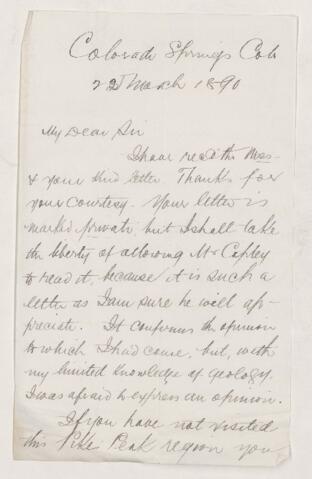 Colorado Springs Colo
22 March 1890
My Dear Sir
I have rec'd the Mss-
& your kind letter. Thanks for
your courtesy. Your letter is
marked private, but I shall take
the liberty of allowing Mr Copley
to read it, because it is such a
letter as I am sure he will ap-
preciate. It confirms the opinion
to which I had come, but, with
my limited knowledge of geology,
I was afraid to express an opinion.
If you have not visited
this Pike Peak region you